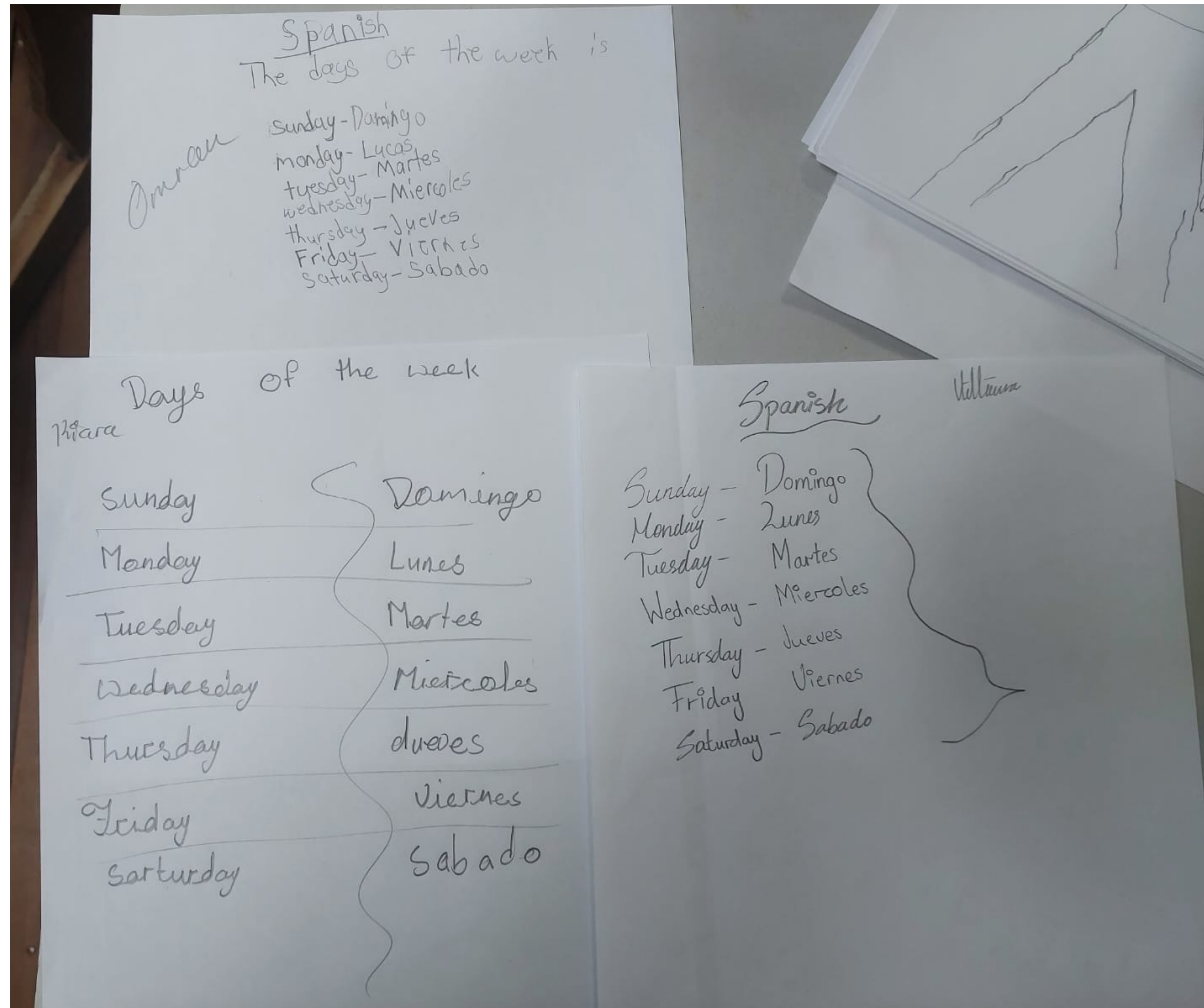 Spanish
The days of the week is
Sunday-Domingo
monday-Lucas
tuesday-Martes
wednesday-Miercoles
thursday-Jueves
Friday-Viernes
Saturday-Sabado
Days of the week
Kiara
Sunday Domingo
Monday Lunes
Tuesday Martes
Wednesday Miercoles
Thursday dueves
Friday Viernes
Sarturday Sabado
Spanish
Sunday - Domingo
Monday - Lunes
Tuesday - Martes
Wednesday - Miercoles
Thursday - Jueves
Friday Viernes
Saturday - Sabado